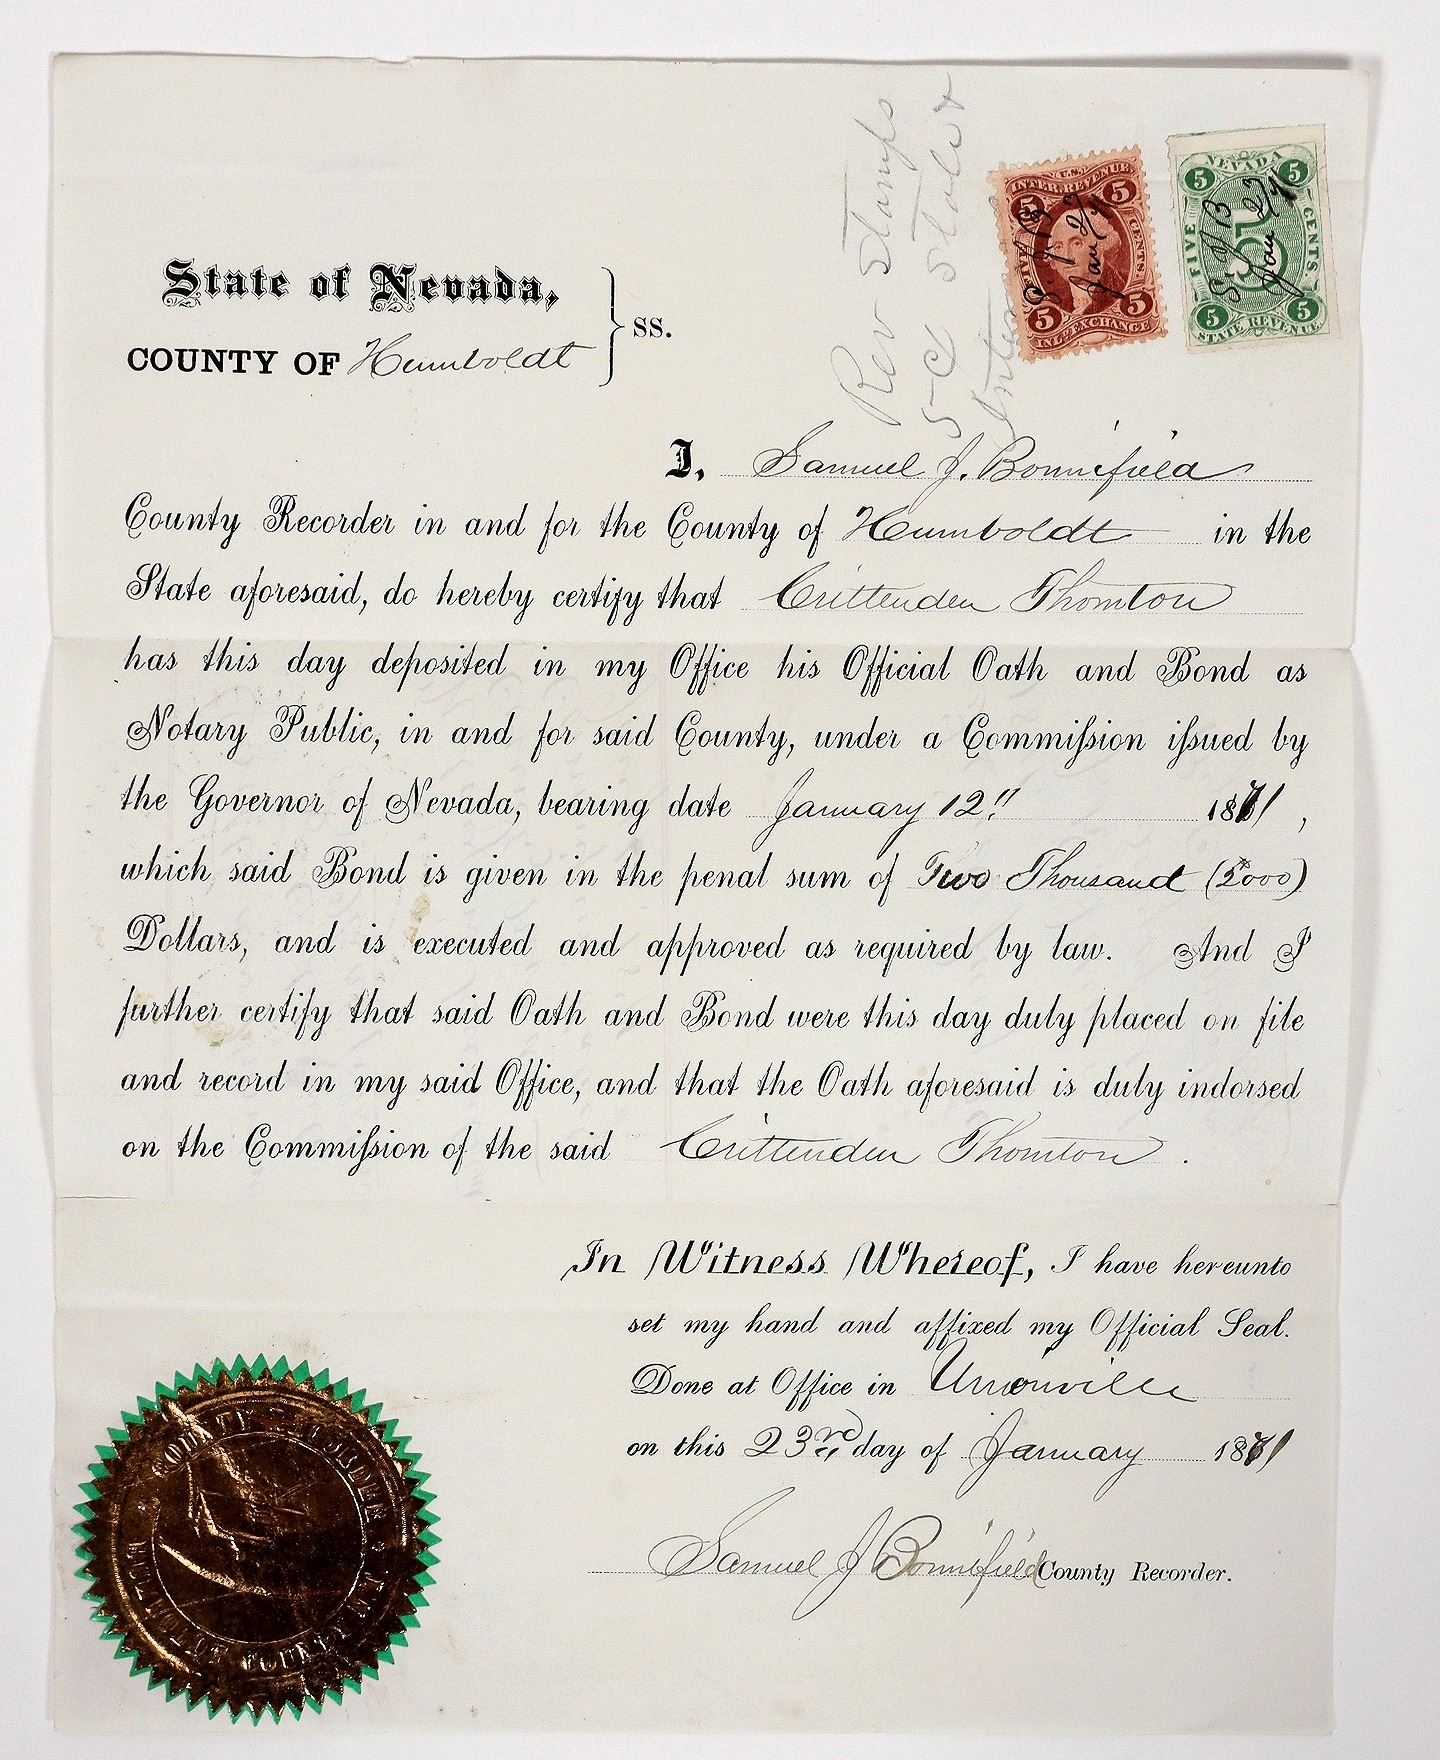 Rev Stamps
5 ct State &
Inter
U.S.
INTER. REVENUE
5 5
FIVE CENTS.
S J B
Jan 23
71
5 5
INL. EXCHANGE
NEVADA
5 5
FIVE CENTS
5
S J B
Jan 23
71
5 5
STATE REVENUE
State of Nevada,
COUNTY OF Humboldt } SS.
I, Samuel J. Bonnifield
County Recorder in and for the County of Humboldt in the
State aforesaid, do hereby certify that Crittenden Thornton
has this day deposited in my Office his Official Oath and Bond as
Notary Public, in and for said County, under a Commiſsion iſsued by
the Governor of Nevada, bearing date January 12" 1871,
which said Bond is given in the penal sum of Two Thousand (2000)
Dollars, and is executed and approved as required by law. And I
further certify that said Oath and Bond were this day duly placed on file
and record in my said Office, and that the Oath aforesaid is duly indorsed
on the Commiſsion of the said Crittenden Thornton.
In Witness Whereof, I have hereunto
set my hand and affixed my Official Seal.
Done at Office in Unionville
on this 23rd day of January 1871
Samuel J Bonnifield County Recorder.
COUNTY RECORDER
HUMBOLDT COUNTY